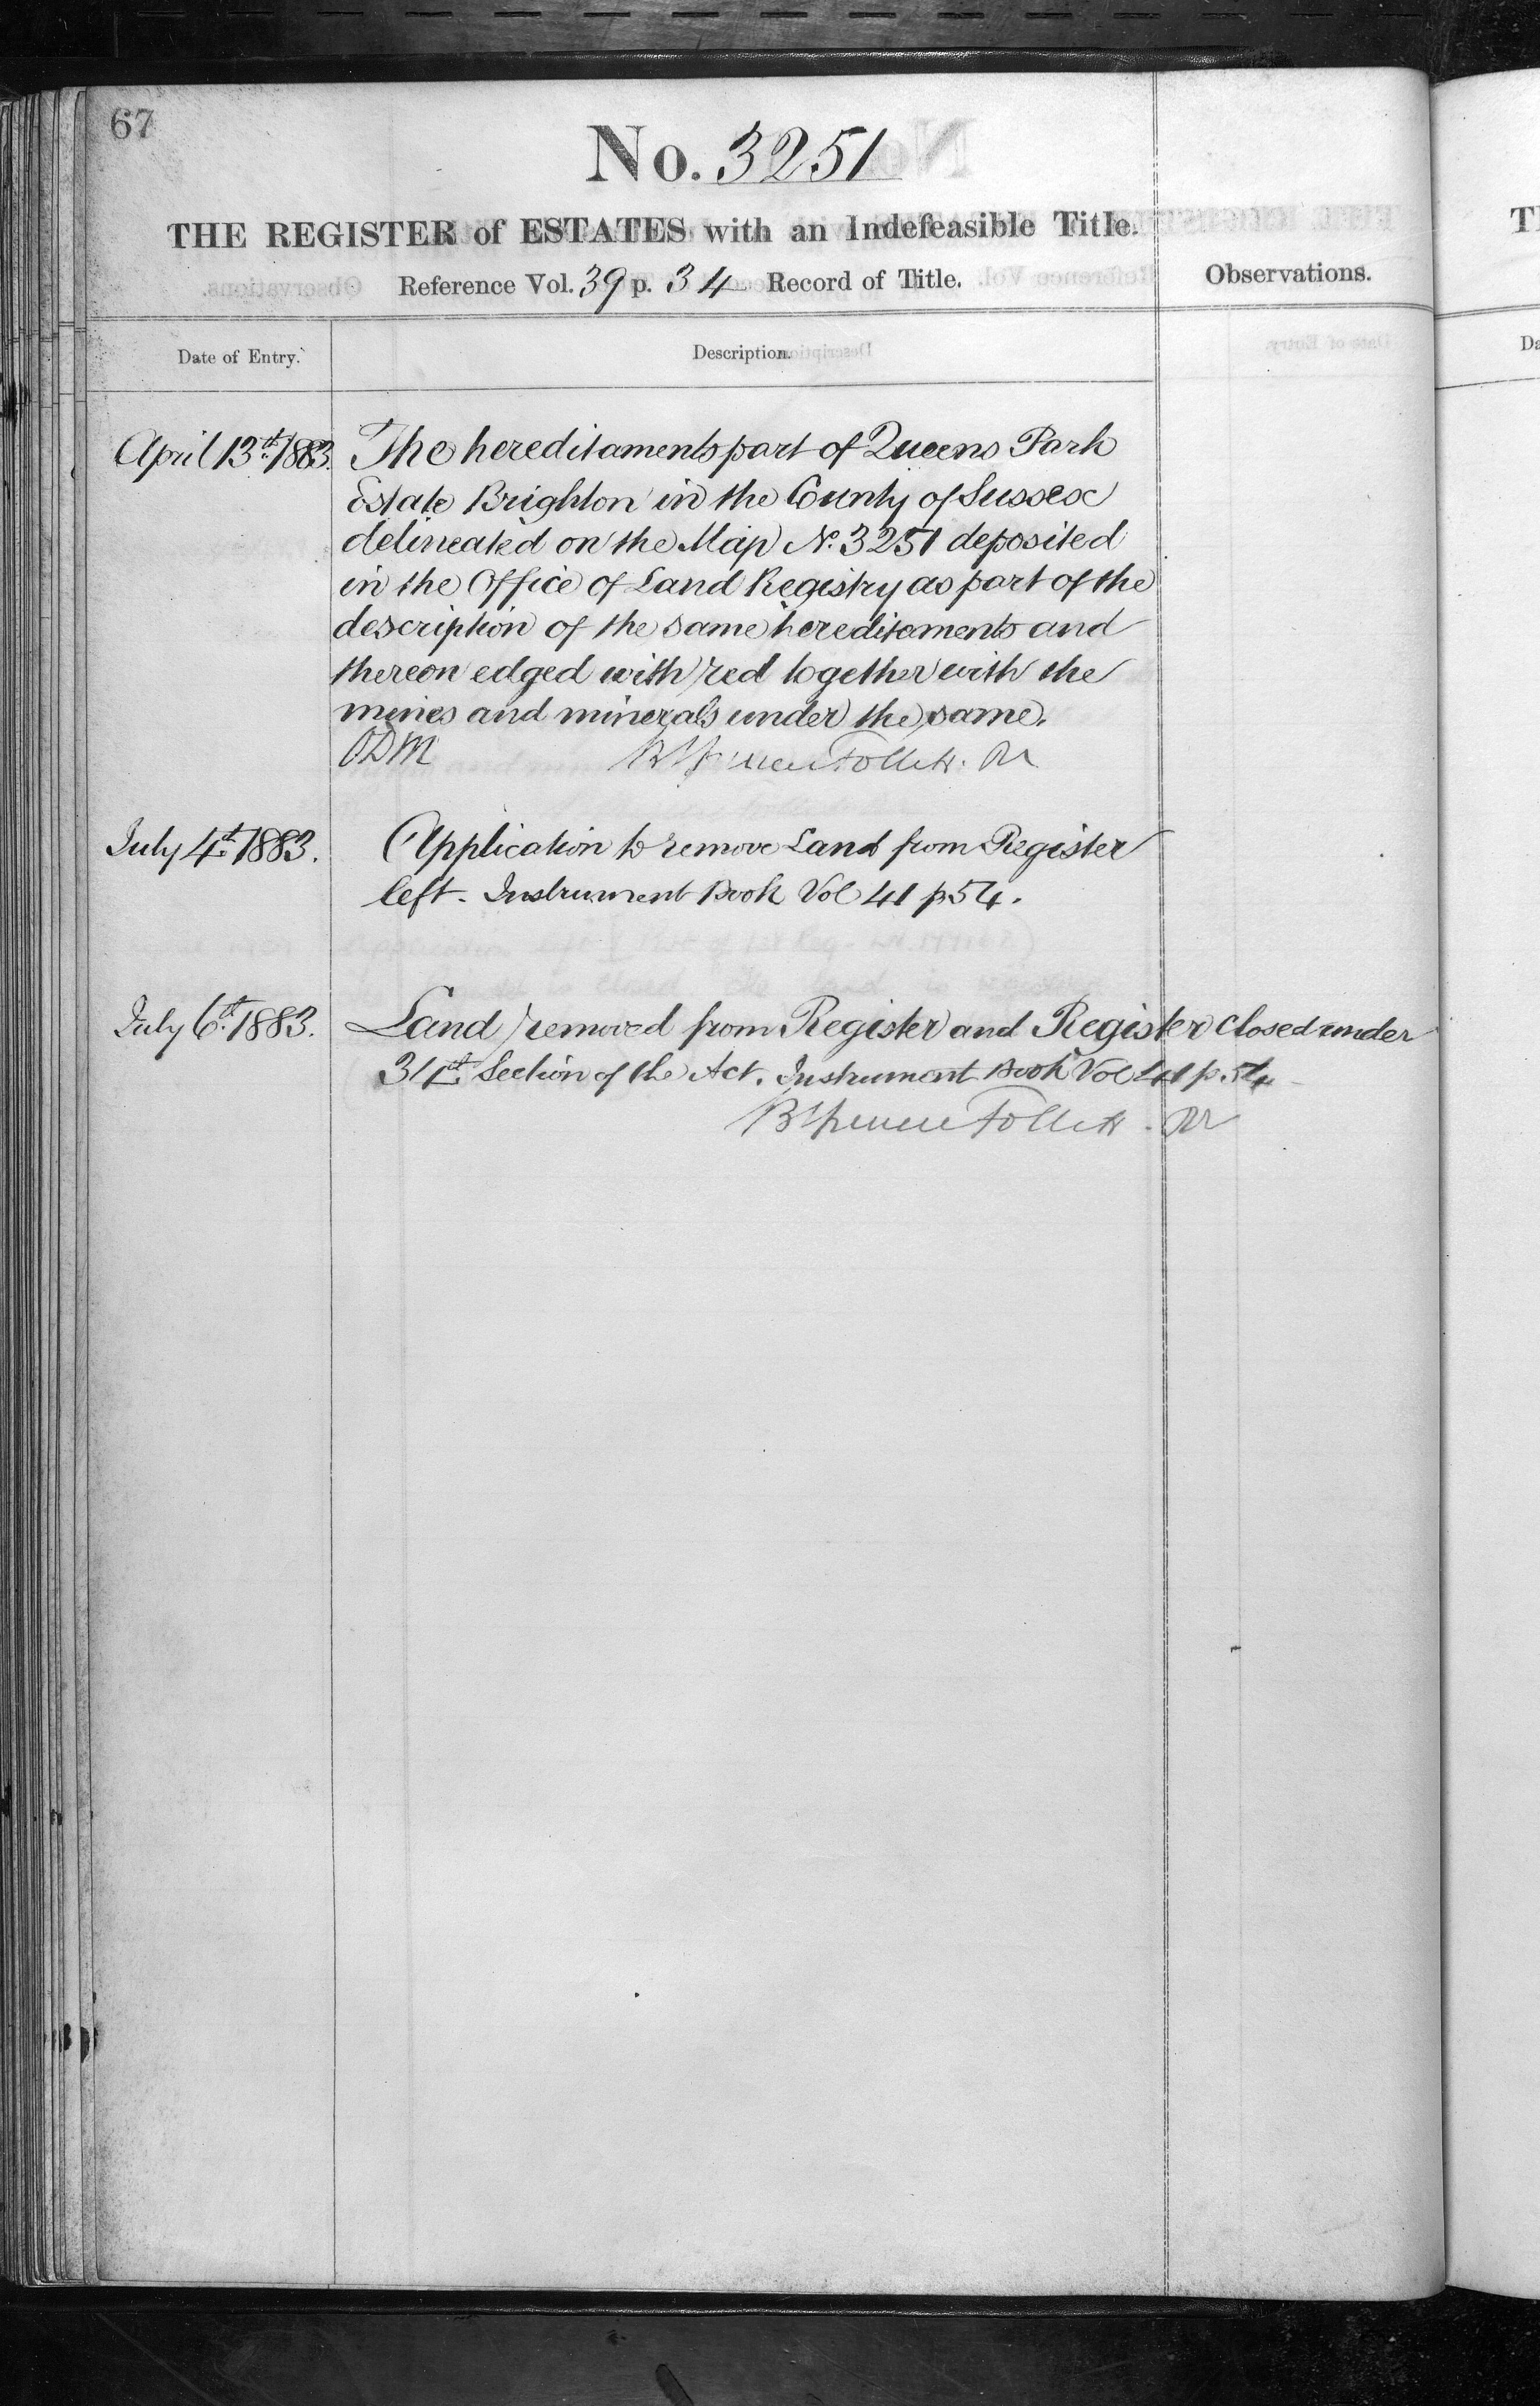 67
No. 3251
THE REGISTER of ESTATES with an Indefeasible Title.
Reference Vol. 39 p. 34 Record of Title.
Observations.
Date of Entry.
Description.
April 13th. 1883. The hereditaments part of Queens Park
Estate Brighton in the County of Sussex
delineated on the Map No. 3251 deposited
in the Office of Land Registry as part of the
description of the same hereditaments and
thereon edged with red together with the
mines and minerals under the same.
BSpencer Follett. Rr
July 4th. 1883. Application to remove Land from Register
left. Instrument Book Vol 41 p 54.
July 6th. 1883. Land removed from Register and Register closed under
31st. Section of the Act. Instrument Book Vol 41 p. 54
BSpencer Follett. Rr